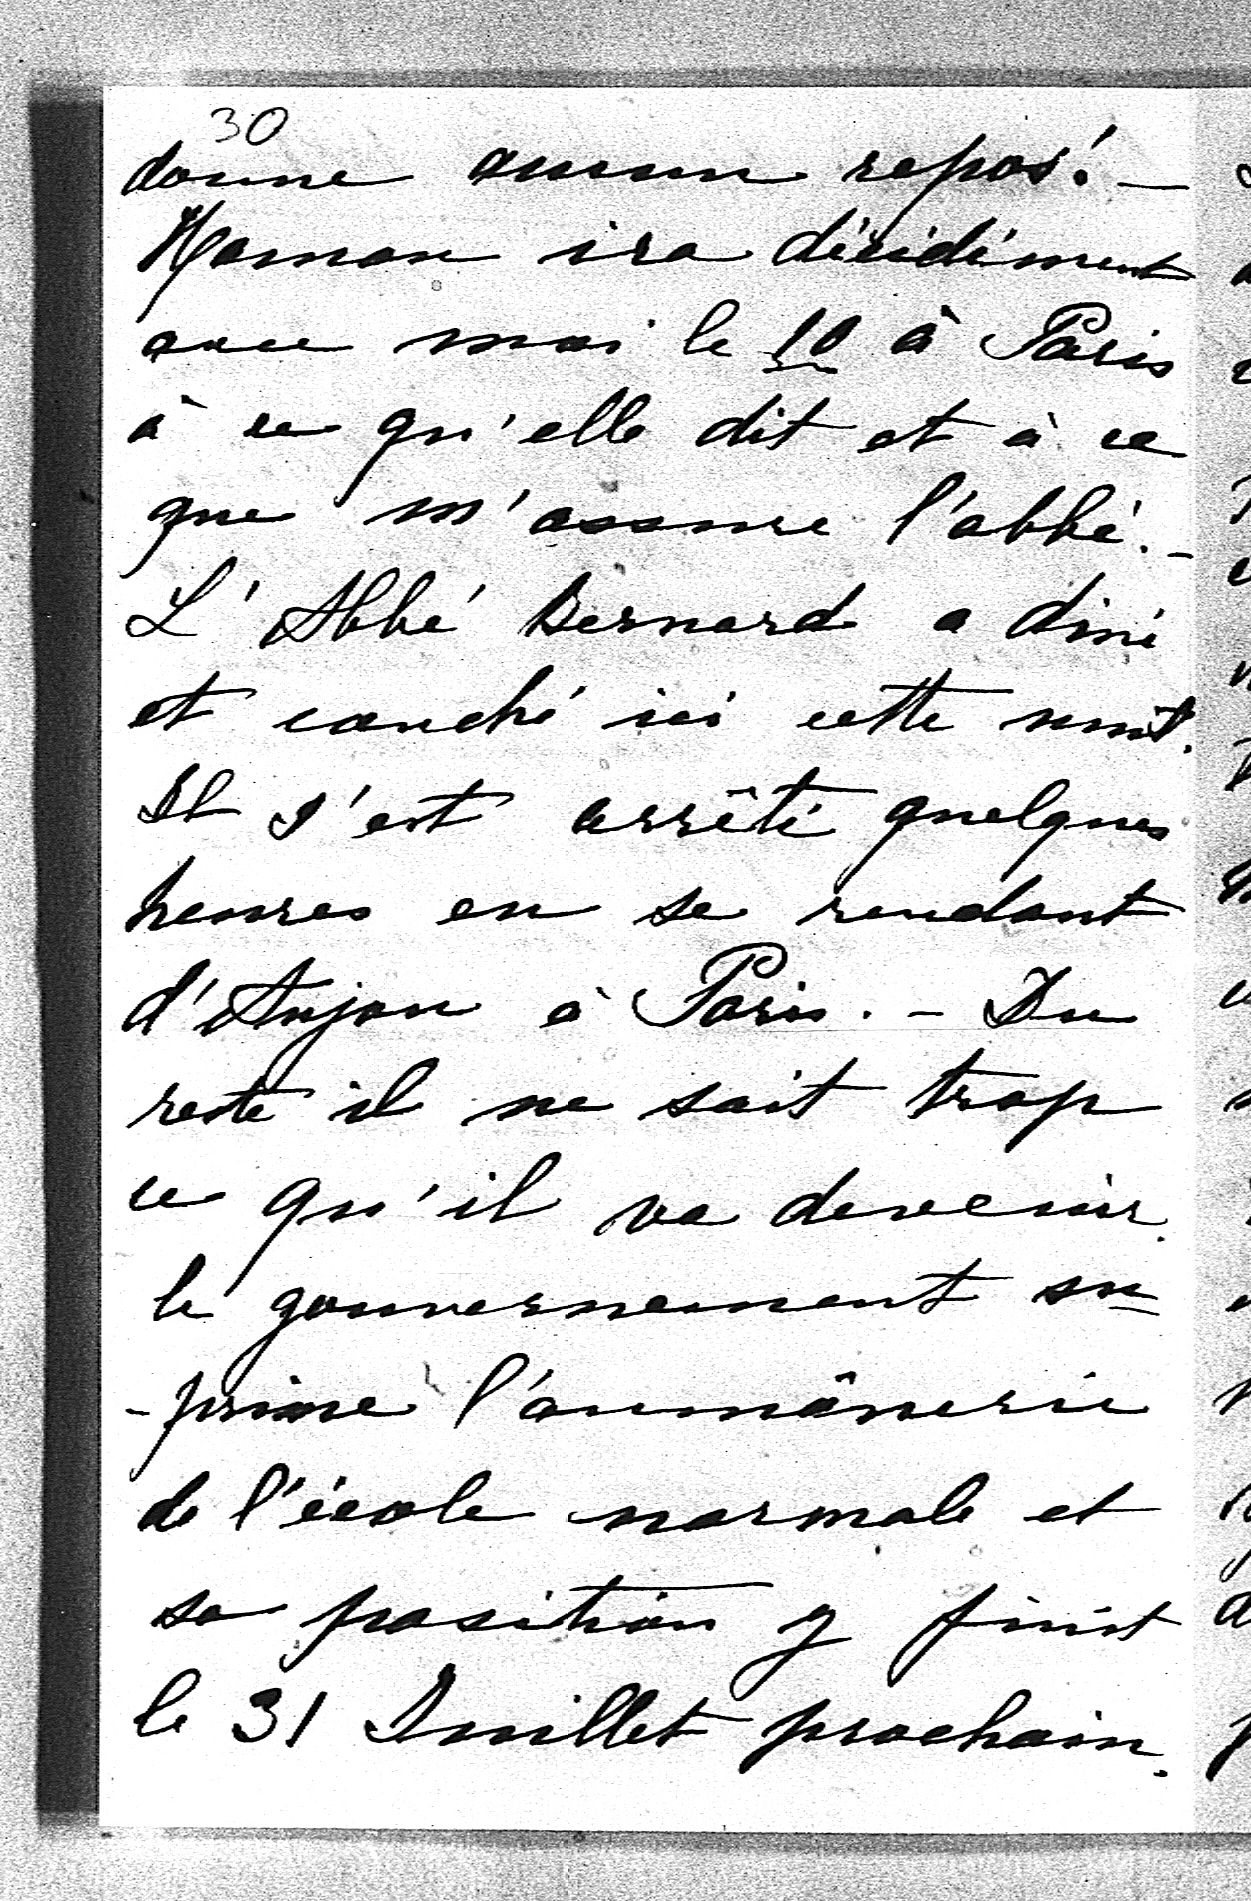 30
donne aucun repos! —
Maman ira décidément
avec moi le 10 à Paris
à ce qu'elle dit et à ce
que m'assure l'abbé. –
L'Abbé Bernard a diné
et couché ici cette nuit.
Il s'est arrêté quelques
heures en se rendant
d'Anjou à Paris. – Du
reste il ne sait trop
ce qu'il va devenir.
le gouvernement su=
-prime l'aumônerie
de l'école normale et
sa position y finit
le 31 Juillet prochain.